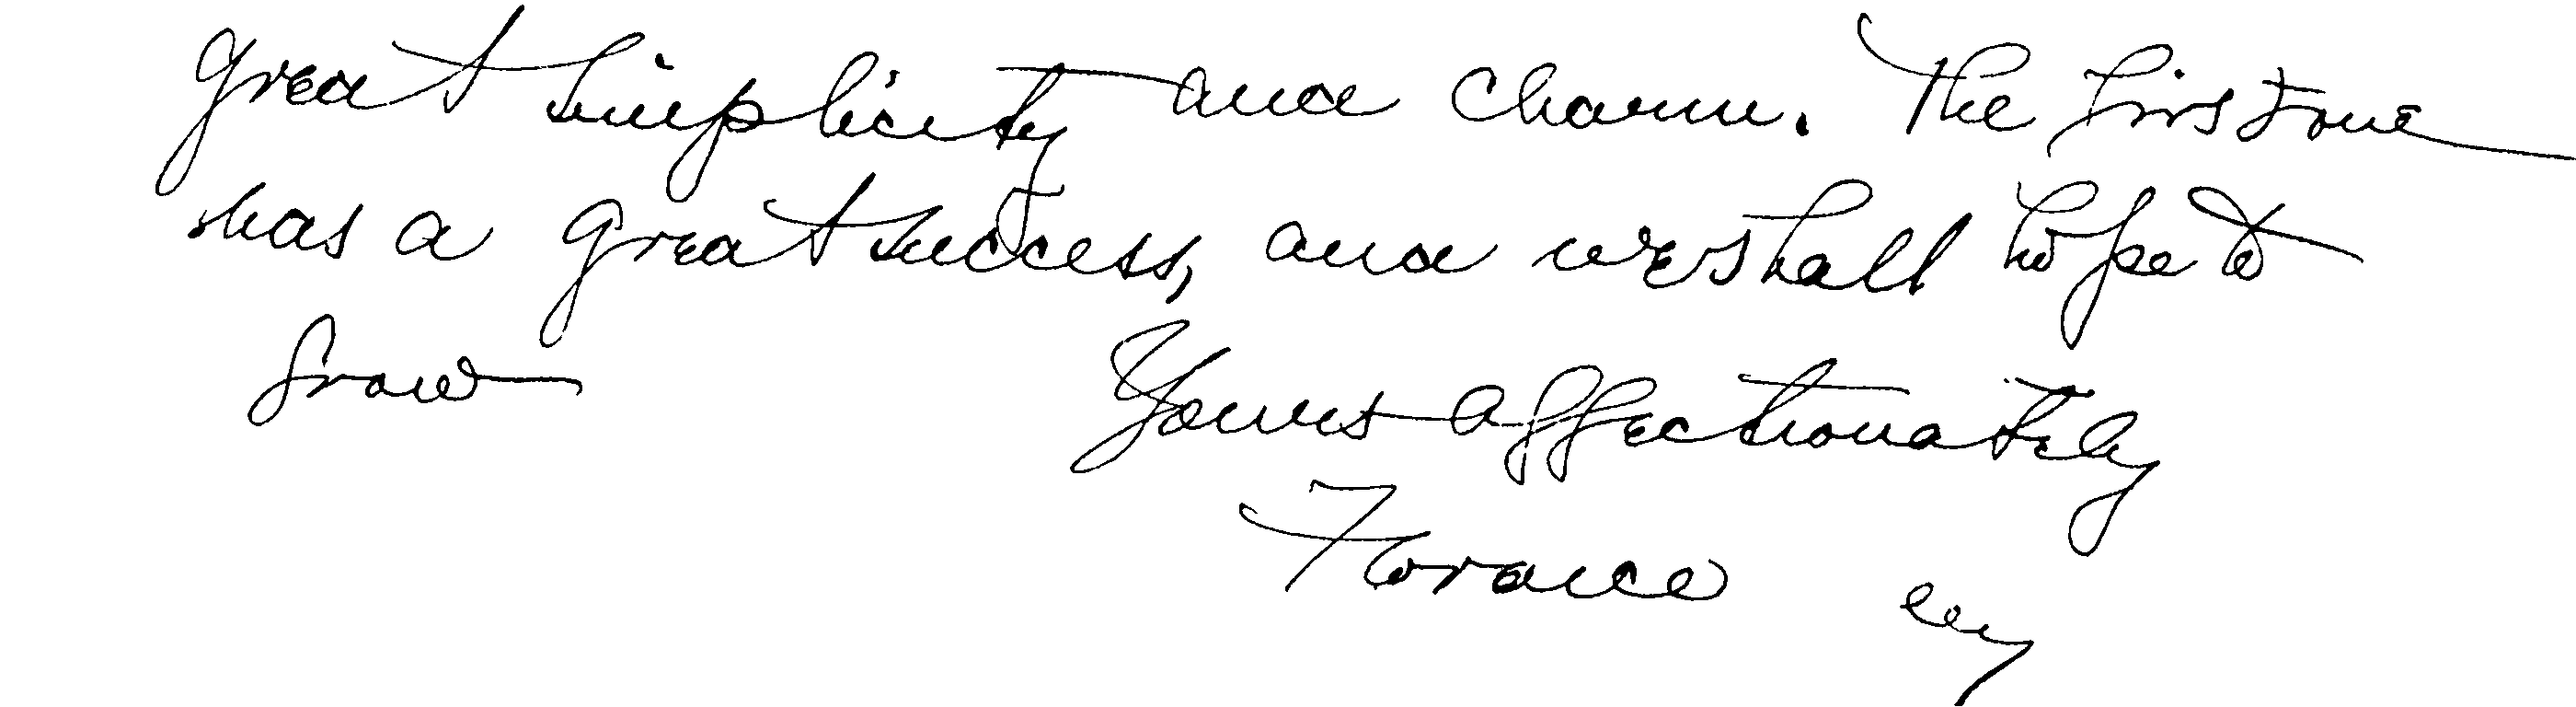 great simplicity and charm. The first one
was a great success, and we shall hope to
grow
Yours affectionately
Florance